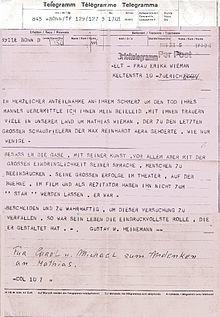 Telegramm Télégramme Telegramma
845 +BONN/TF 129/127 5 1201
9911E BONN D
Telegramm
Per Post
=ELT - FRAU ERIKA WIEMAN
KELTENSTR 10 - ZUERICH
IN HERZLICHER ANTEILNAHME AN IHREM SCHMERZ UM DEN TOD IHRES
MANNES UEBERMITTLE ICH IHNEN MEIN BEILEID. MIT IHNEN TRAUERN
VIELE IN UNSEREM LAND UM MATHIAS WIEMAN, DER ZU DEN LETZTEN
GROSSEN SCHAUSPIELERN DER MAX REINHARDT AERA GEHOERTE. WIE NUR
WENIGE.
BESASS ER DIE GABE, MIT SEINER KUNST, VOR ALLEM ABER MIT DER
GROSSEN EINDRINGLICHKEIT SEINER SPRACHE, MENSCHEN ZU
BEEINDRUCKEN. SEINE GROSSEN ERFOLGE IM THEATER, AUF DER
BUEHNE, IM FILM UND ALS REZITATOR HABEN IHN NICHT ZUM
" STAR " WERDEN LASSEN. ER WAR
BESCHEIDEN UND ZU WAHRHAFTIG, UM DIESER VERSUCHUNG ZU
VERFALLEN. SO WAR SEIN LEBEN DIE EINDRUCKVOLLSTE ROLLE, DIE
ER GESTALTET HAT. GUSTAV W. HEINEMANN ---
Für Carol u. Michael zum Andenken
an Mathias.
COL 10